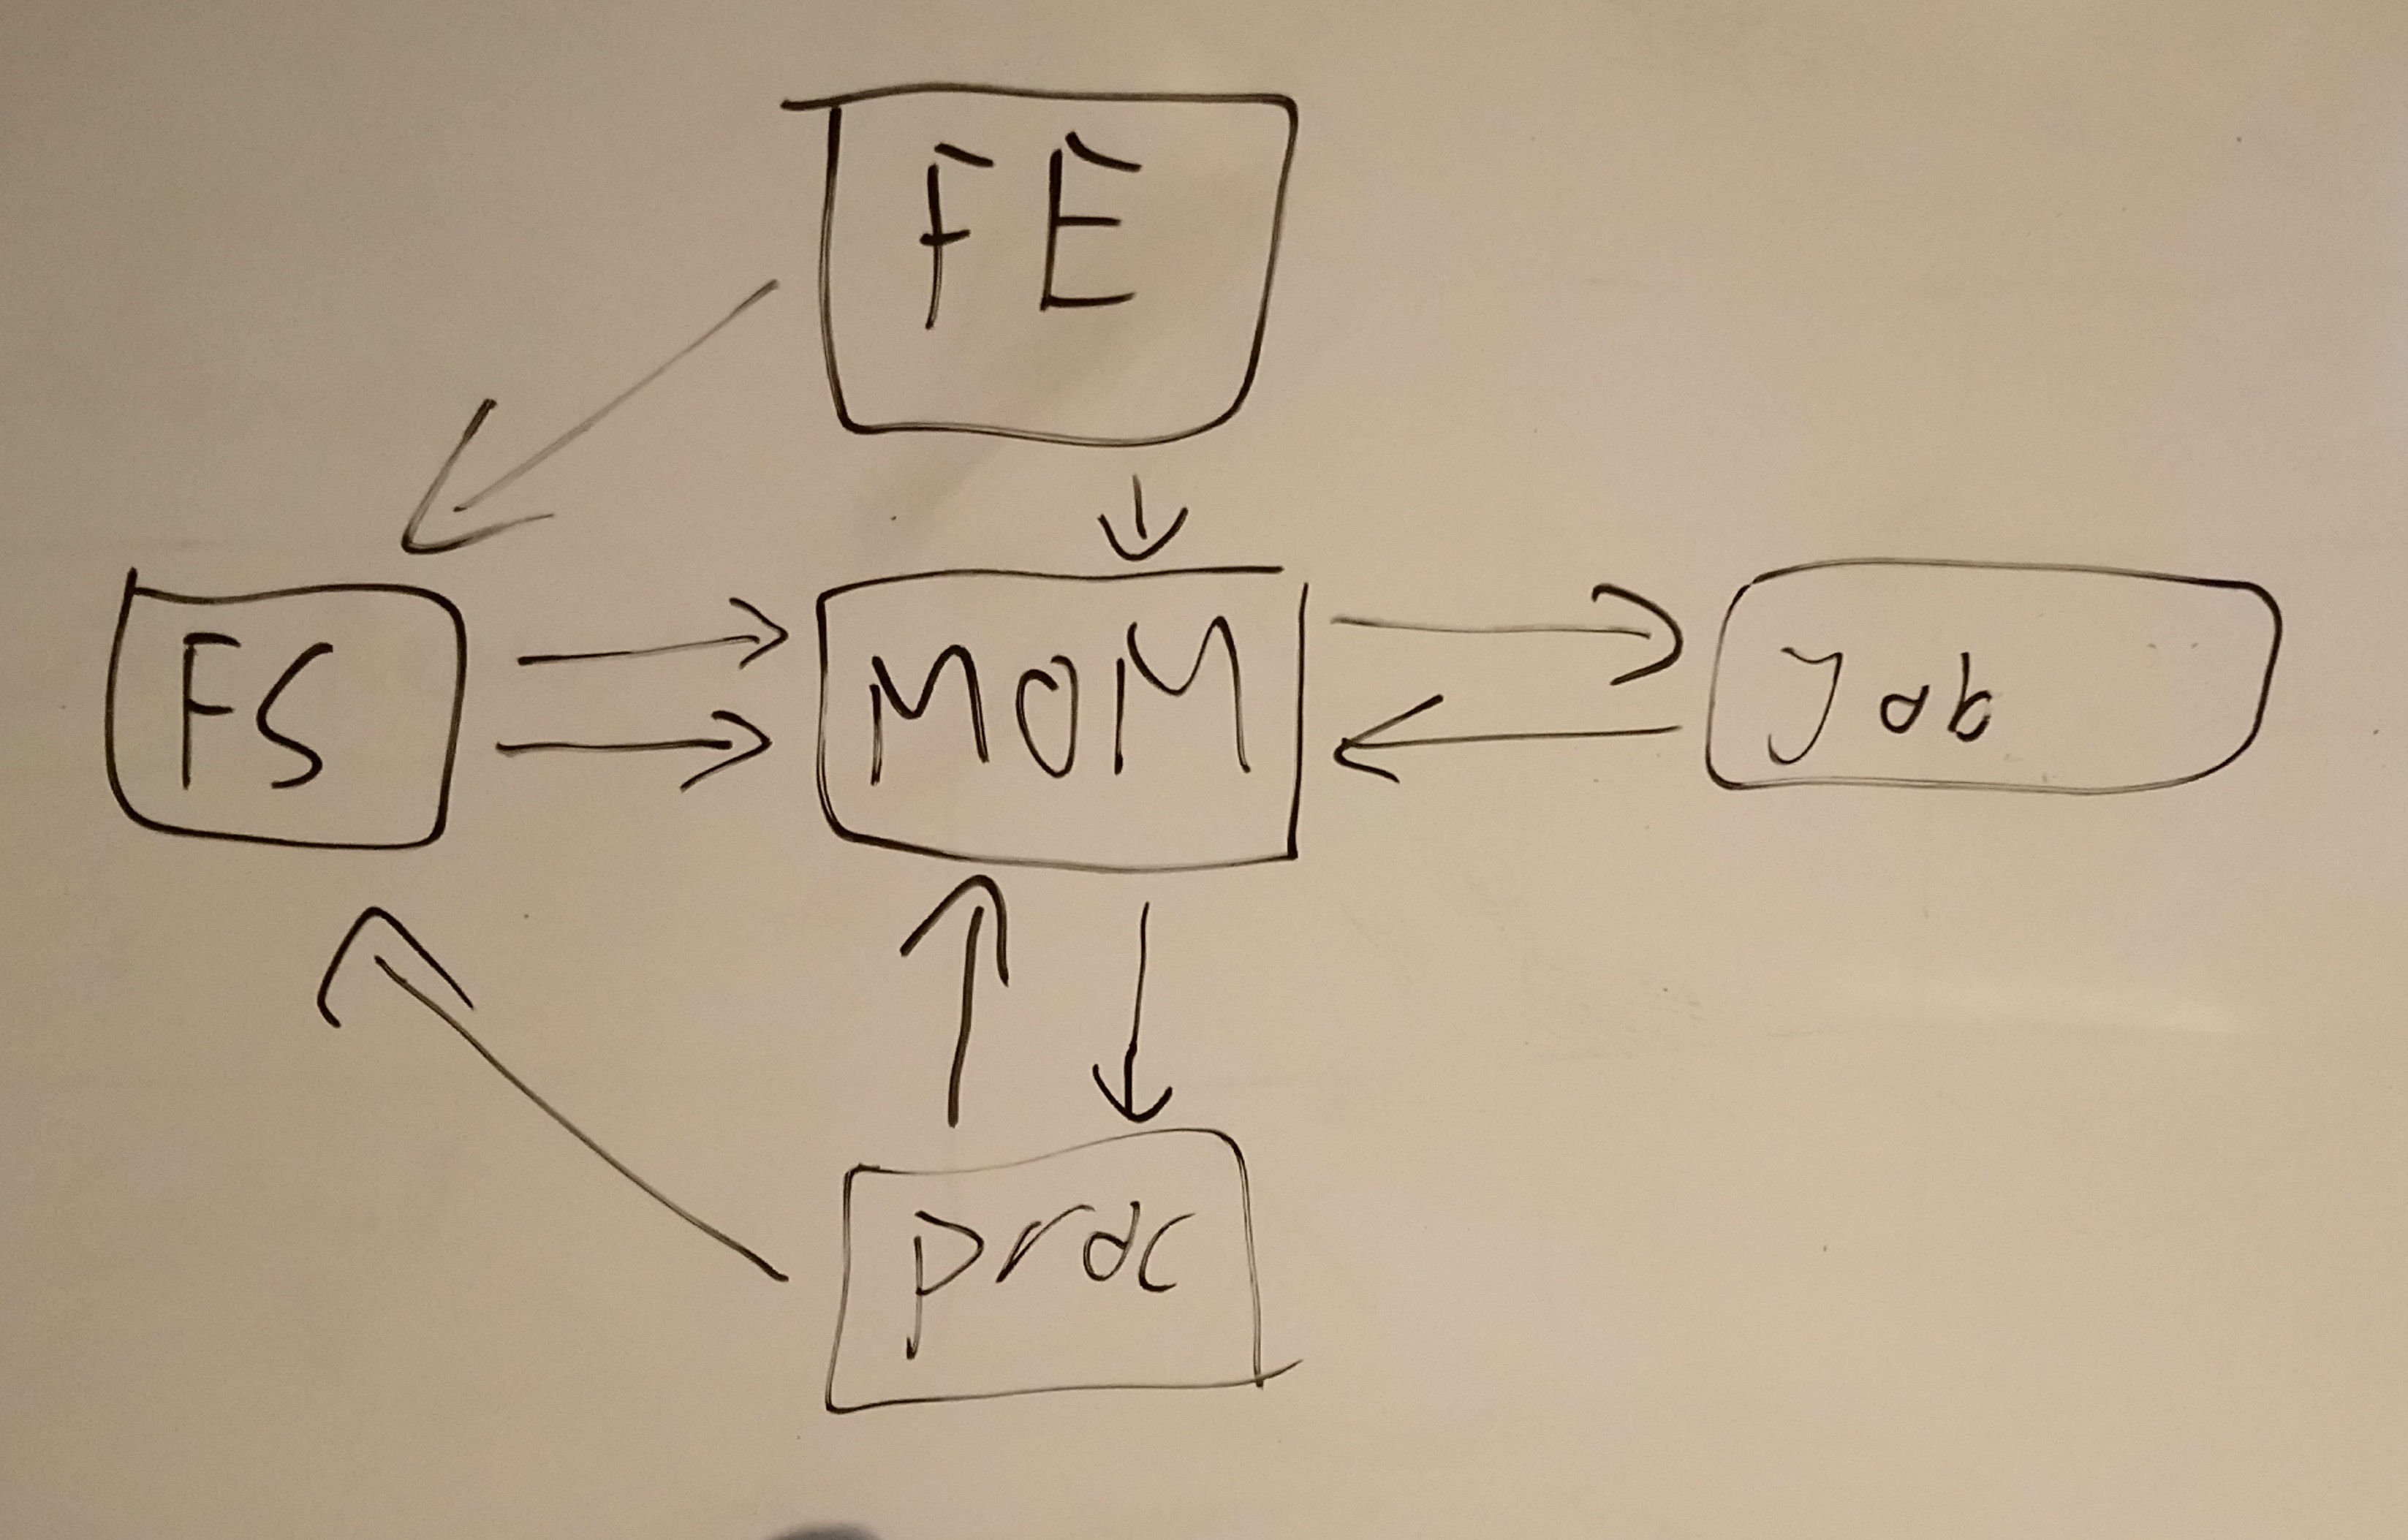 FE
FS
MOM
Job
proc